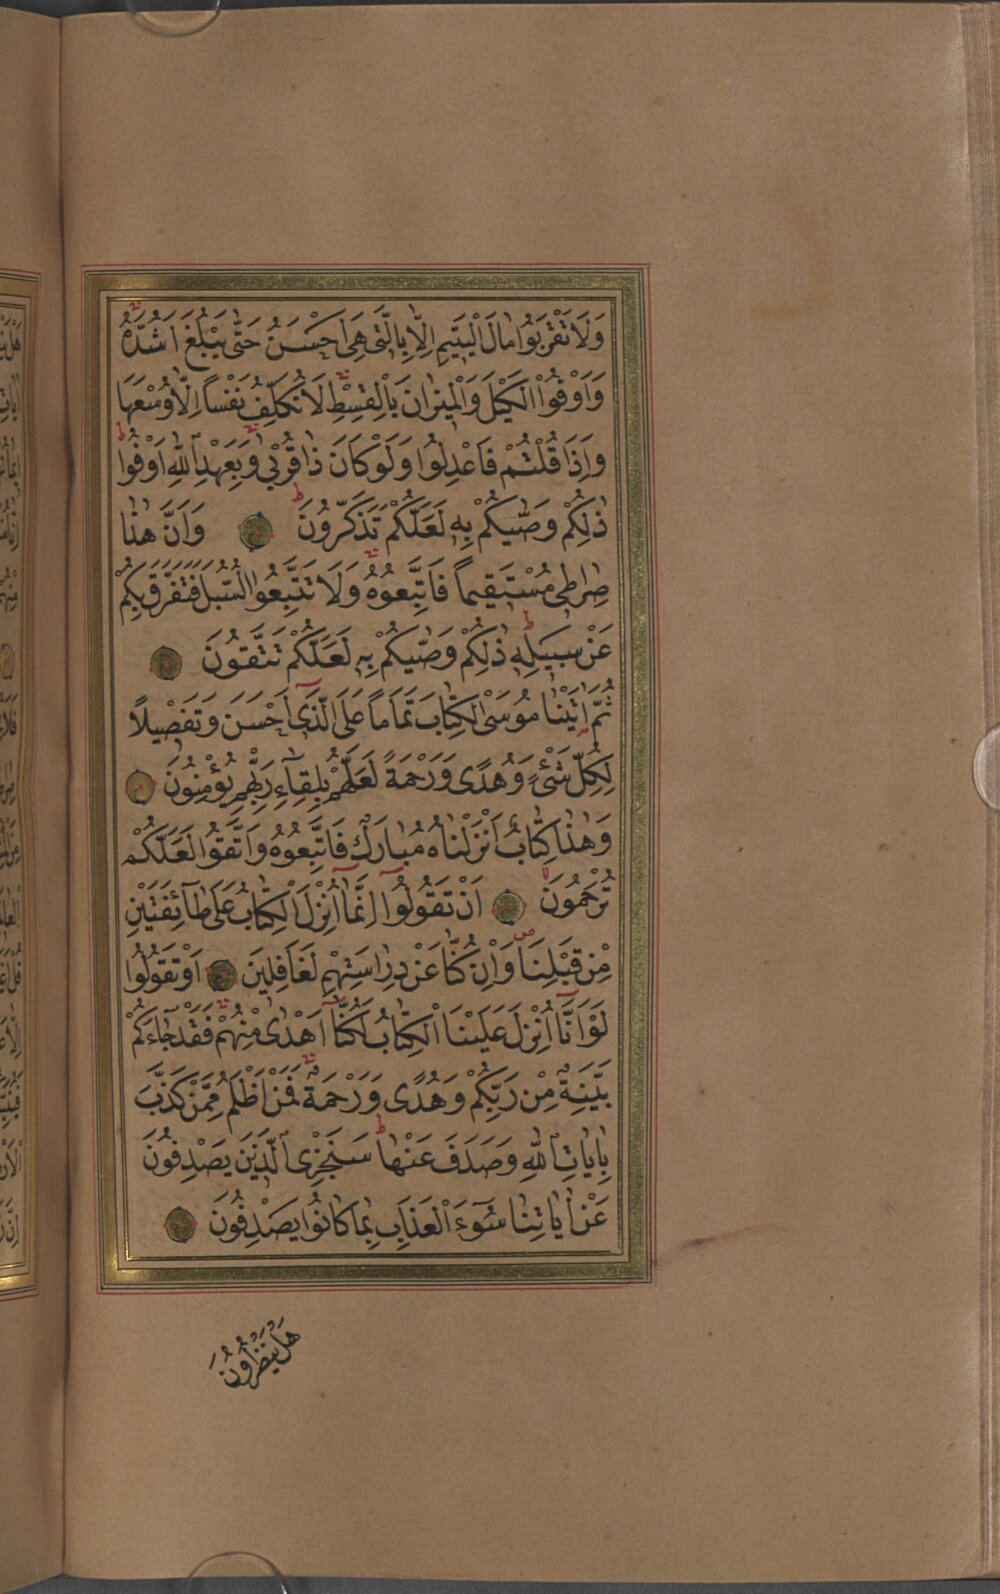 وَلَا تَقْرَبُوا مَالَ الْيَتِيمِ اِلَّا بِالَّتِى هِىَ اَحْسَنُ حَتّٰى يَبْلُغَ اَشُدَّهُ
وَاَوْفُوا الْكَيْلَ وَالْمِيزَانَ بِالْقِسْطِ لَا نُكَلِّفُ نَفْسًا اِلَّا وُسْعَهَا
وَاِذَا قُلْتُمْ فَاعْدِلُوا وَلَوْ كَانَ ذَا قُرْبٰى وَبِعَهْدِ اللّٰهِ اَوْفُوا
ذٰلِكُمْ وَصّٰيكُمْ بِهِ لَعَلَّكُمْ تَذَكَّرُونَ وَاَنَّ هٰذَا
صِرَاطِى مُسْتَقِيمًا فَاتَّبِعُوهُ وَلَا تَتَّبِعُوا السُّبُلَ فَتَفَرَّقَ بِكُمْ
عَنْ سَبِيلِهِ ذٰلِكُمْ وَصّٰيكُمْ بِهِ لَعَلَّكُمْ تَتَّقُونَ
ثُمَّ اٰتَيْنَا مُوسَى الْكِتَابَ تَمَامًا عَلَى الَّذِى اَحْسَنَ وَتَفْصِيلًا
لِكُلِّ شَىْءٍ وَهُدًى وَرَحْمَةً لَعَلَّهُمْ بِلِقَاءِ رَبِّهِمْ يُؤْمِنُونَ
وَهٰذَا كِتَابٌ اَنْزَلْنَاهُ مُبَارَكٌ فَاتَّبِعُوهُ وَاتَّقُوا لَعَلَّكُمْ
تُرْحَمُونَ اَنْ تَقُولُوا اِنَّمَا اُنْزِلَ الْكِتَابُ عَلٰى طَآئِفَتَيْنِ
مِنْ قَبْلِنَا وَاِنْ كُنَّا عَنْ دِرَاسَتِهِمْ لَغَافِلِينَ اَوْ تَقُولُوا
لَوْ اَنَّا اُنْزِلَ عَلَيْنَا الْكِتَابُ لَكُنَّا اَهْدٰى مِنْهُمْ فَقَدْ جَاءَكُمْ
بَيِّنَةٌ مِنْ رَبِّكُمْ وَهُدًى وَرَحْمَةٌ فَمَنْ اَظْلَمُ مِمَّنْ كَذَّبَ
بِاٰيَاتِ اللّٰهِ وَصَدَفَ عَنْهَا سَنَجْزِى الَّذِينَ يَصْدِفُونَ
عَنْ اٰيَاتِنَا سُوٓءَ الْعَذَابِ بِمَا كَانُوا يَصْدِفُونَ
هَلْ يَنْظُرُونَ